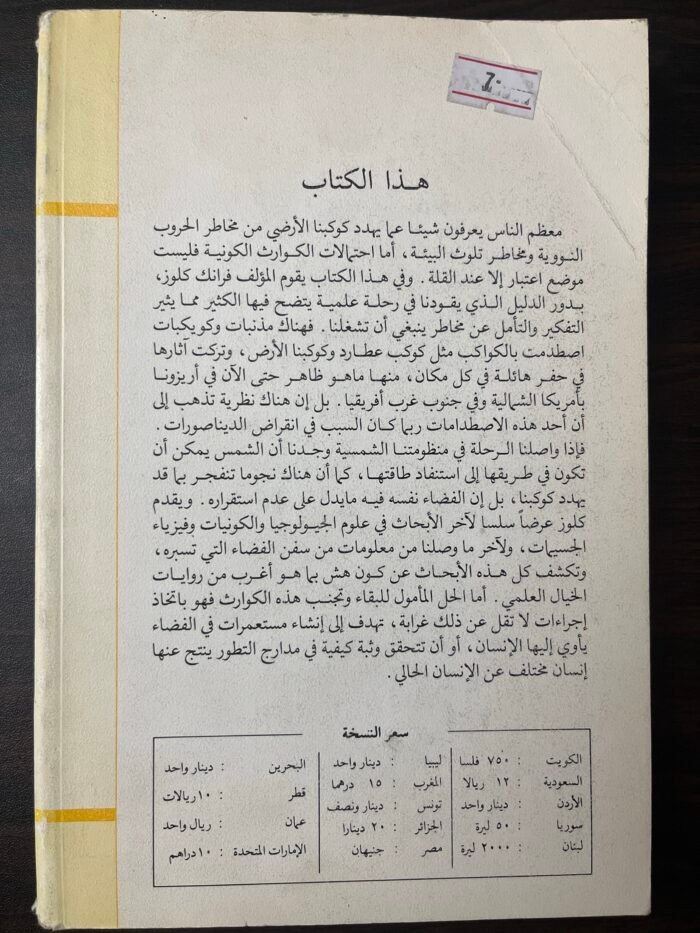 7-
هذا الكتاب
معظم الناس يعرفون شيئا عما يهدد كوكبنا الأرضي من مخاطر الحروب
النووية ومخاطر تلوث البيئة، أما احتمالات الكوارث الكونية فليست
موضع اعتبار إلا عند القلة. وفي هذا الكتاب يقوم المؤلف فرانك كلوز،
بدور الدليل الذي يقودنا في رحلة علمية يتضح فيها الكثير مما يثير
التفكير والتأمل عن مخاطر ينبغي أن تشغلنا. فهناك مذنبات وكويكبات
اصطدمت بالكواكب مثل كوكب عطارد وكوكبنا الأرض، وتركت آثارها
في حفر هائلة في كل مكان، منها ماهو ظاهر حتى الآن في أريزونا
بأمريكا الشمالية وفي جنوب غرب أفريقيا. بل إن هناك نظرية تذهب إلى
أن أحد هذه الاصطدامات ربما كان السبب في انقراض الديناصورات.
فإذا واصلنا الرحلة في منظومتنا الشمسية وجدنا أن الشمس يمكن أن
تكون في طريقها إلى استنفاد طاقتها، كما أن هناك نجوما تنفجر بما قد
يهدد كوكبنا، بل إن الفضاء نفسه فيه مايدل على عدم استقراره. ويقدم
كلوز عرضاً سلسا لآخر الأبحاث في علوم الجيولوجيا والكونيات وفيزياء
الجسيمات، ولآخر ما وصلنا من معلومات من سفن الفضاء التي تسبره،
وتكشف كل هذه الأبحاث عن كون هش بما هو أغرب من روايات
الخيال العلمي. أما الحل المأمول للبقاء وتجنب هذه الكوارث فهو باتخاذ
إجراءات لا تقل عن ذلك غرابة، تهدف إلى إنشاء مستعمرات في الفضاء
يأوي إليها الإنسان، أو أن تتحقق وثبة كيفية في مدارج التطور ينتج عنها
إنسان مختلف عن الإنسان الحالي.
سعر النسخة
الكويت : ٧٥٠ فلسا
السعودية : ١٢ ريالا
الأردن : دينار واحد
سوريا : ٥٠ ليرة
لبنان : ٢٠٠٠ ليرة
ليبيا : دينار واحد
المغرب : ١٥ درهما
تونس : دينار ونصف
الجزائر : ٢٠ دينارا
مصر : جنيهان
البحرين : دينار واحد
قطر : ١٠ريالات
عمان : ريال واحد
الإمارات المتحدة : ١٠دراهم